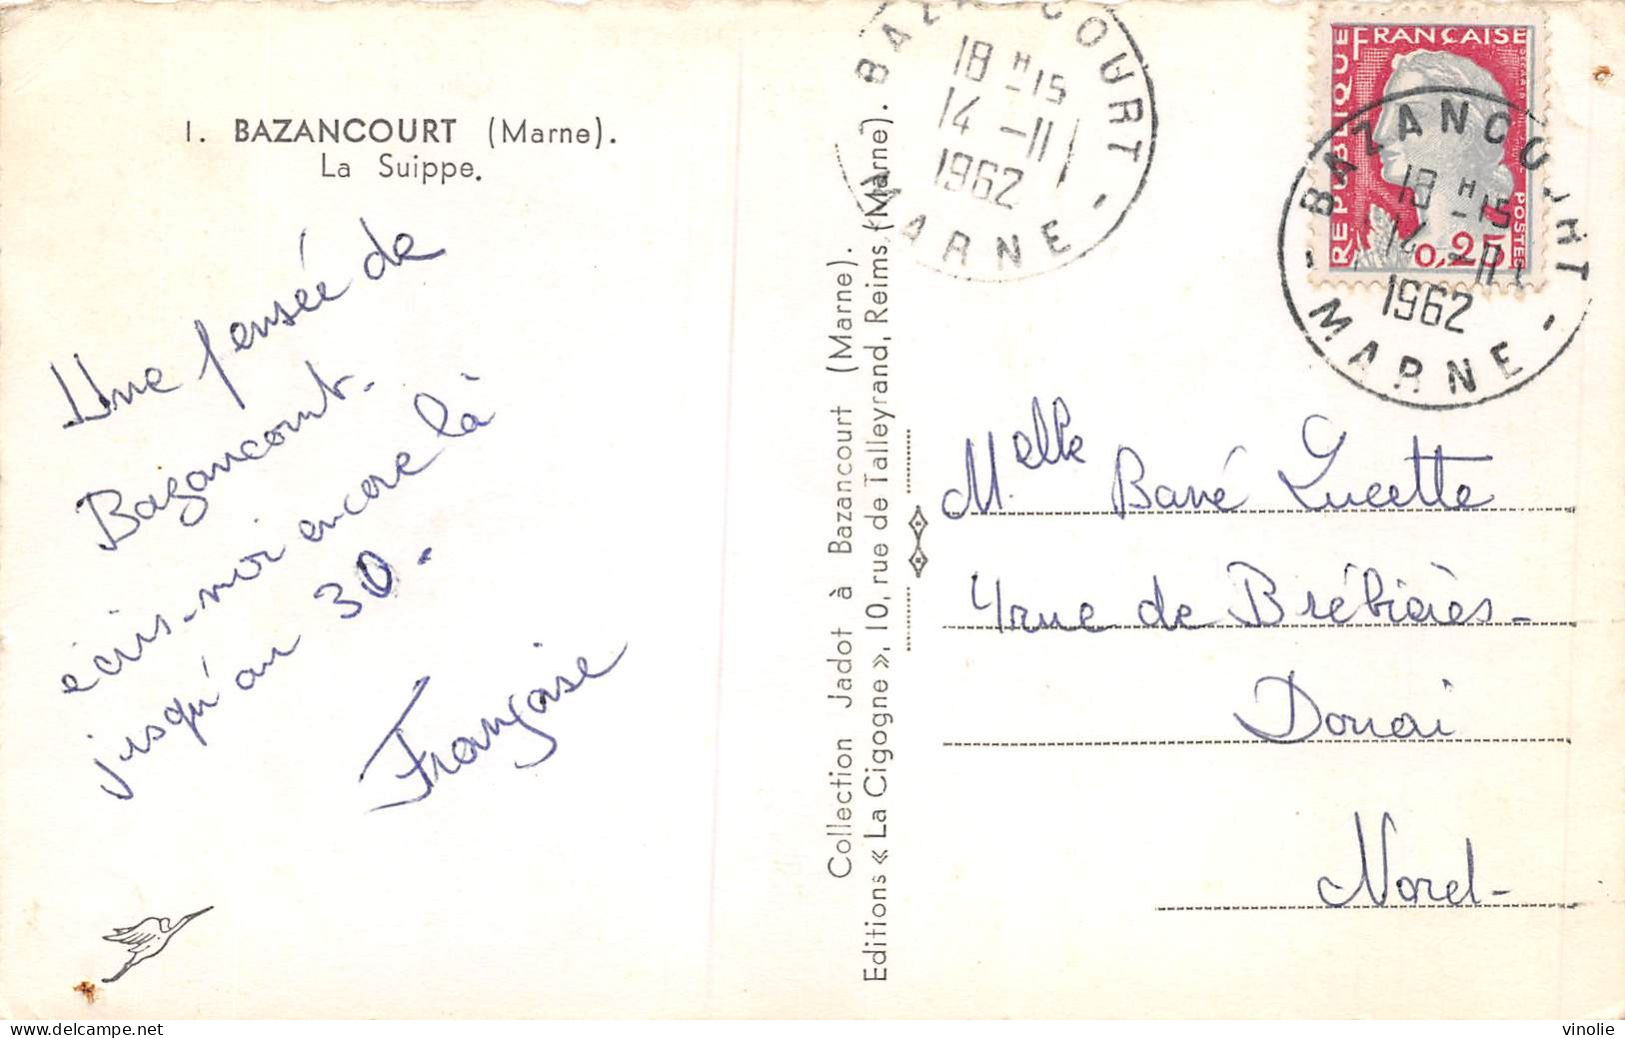 1. BAZANCOURT (Marne).
La Suippe.
Une pensée de
Bazancourt.
écris-moi encore là
jusqu'au 30.
Françoise
Collection Jadot à Bazancourt (Marne).
Editions « La Cigogne », 10, rue de Talleyrand, Reims (Marne).
BAZANCOURT
18 H 15
14 - 11
1962
MARNE
REPUBLIQUE FRANÇAISE
POSTES
0,25
BAZANCOURT
18 H 15
14 - 11
1962
MARNE
Melle Barré Lucette
4 rue de Brébières-
Douai
Nord-
vinolie